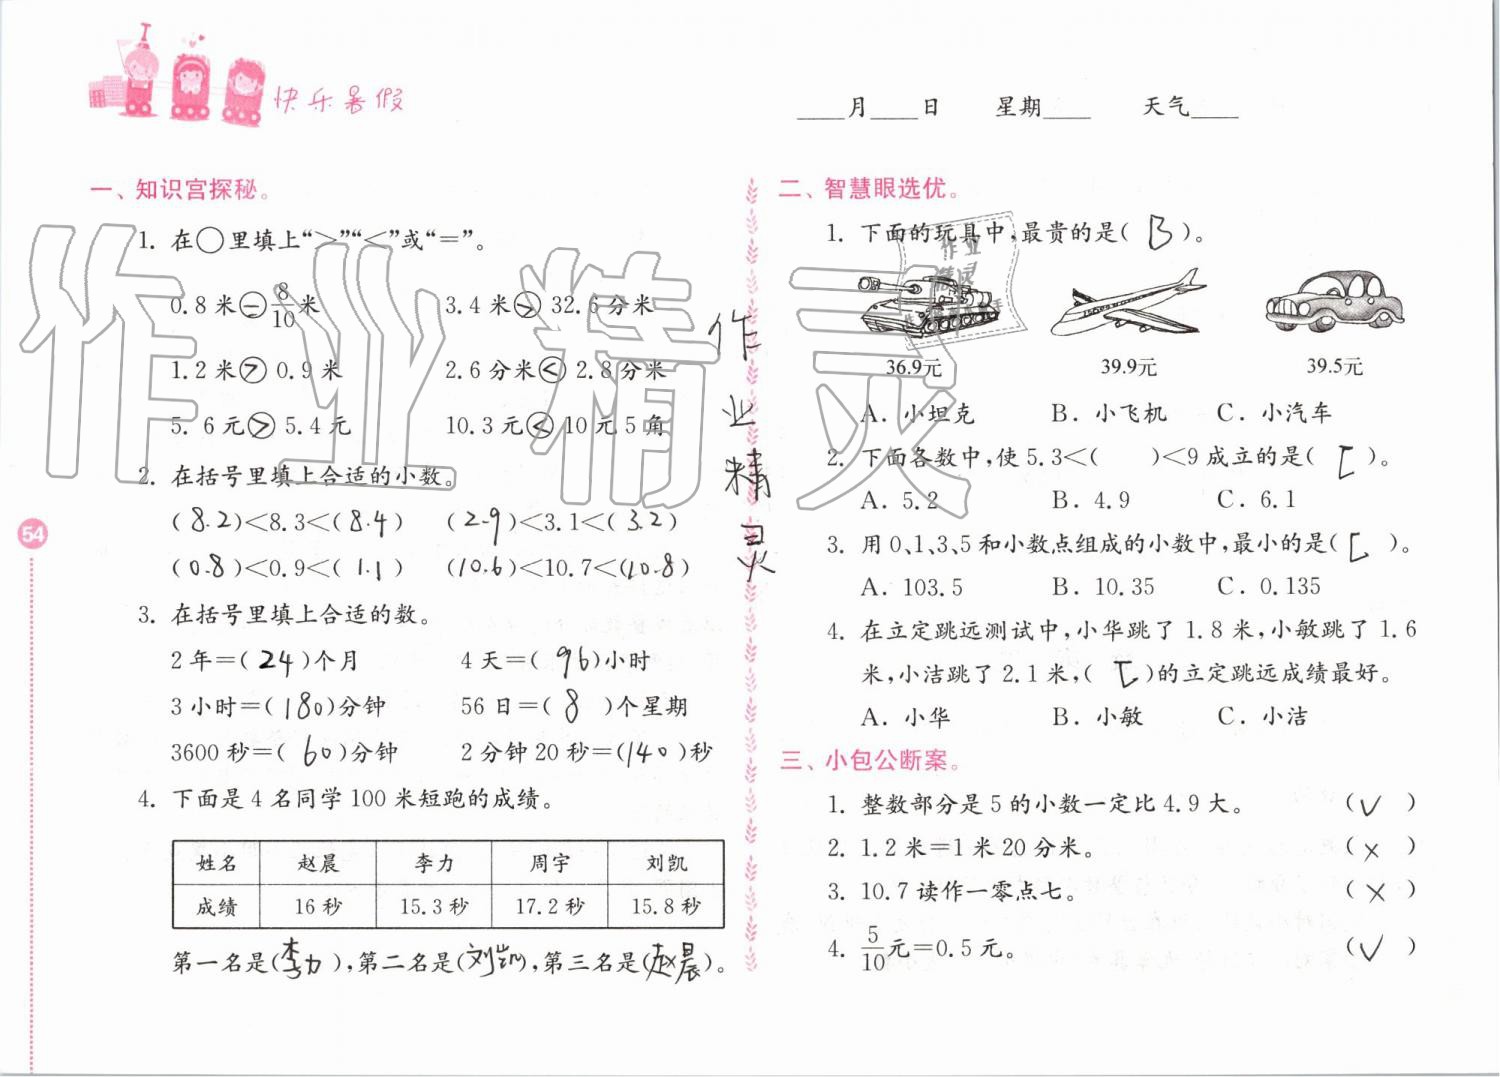 快乐暑假
____月____日 星期____ 天气____
一、知识宫探秘。
1. 在○里填上“>”“<”或“=”。
0.8米=8/10米 3.4米>32.6分米
1.2米>0.9米 2.6分米<2.8分米
5.6元>5.4元 10.3元<10元5角
2. 在括号里填上合适的小数。
(8.2)<8.3<(8.4) (2.9)<3.1<(3.2)
(0.8)<0.9<(1.1) (10.6)<10.7<(10.8)
3. 在括号里填上合适的数。
2年=(24)个月 4天=(96)小时
3小时=(180)分钟 56日=(8)个星期
3600秒=(60)分钟 2分钟20秒=(140)秒
4. 下面是4名同学100米短跑的成绩。
姓名 赵晨 李力 周宇 刘凯
成绩 16秒 15.3秒 17.2秒 15.8秒
第一名是(李力),第二名是(刘凯),第三名是(赵晨)。
54
作业精灵
作业精灵
二、智慧眼选优。
1. 下面的玩具中,最贵的是(B)。
作业
精灵
36.9元 39.9元 39.5元
A. 小坦克 B. 小飞机 C. 小汽车
2. 下面各数中,使5.3<( )<9成立的是(C)。
A. 5.2 B. 4.9 C. 6.1
3. 用0、1、3、5和小数点组成的小数中,最小的是(C)。
A. 103.5 B. 10.35 C. 0.135
4. 在立定跳远测试中,小华跳了1.8米,小敏跳了1.6
米,小洁跳了2.1米,(C)的立定跳远成绩最好。
A. 小华 B. 小敏 C. 小洁
三、小包公断案。
1. 整数部分是5的小数一定比4.9大。 (√)
2. 1.2米=1米20分米。 (×)
3. 10.7读作一零点七。 (×)
4. 5/10元=0.5元。 (√)